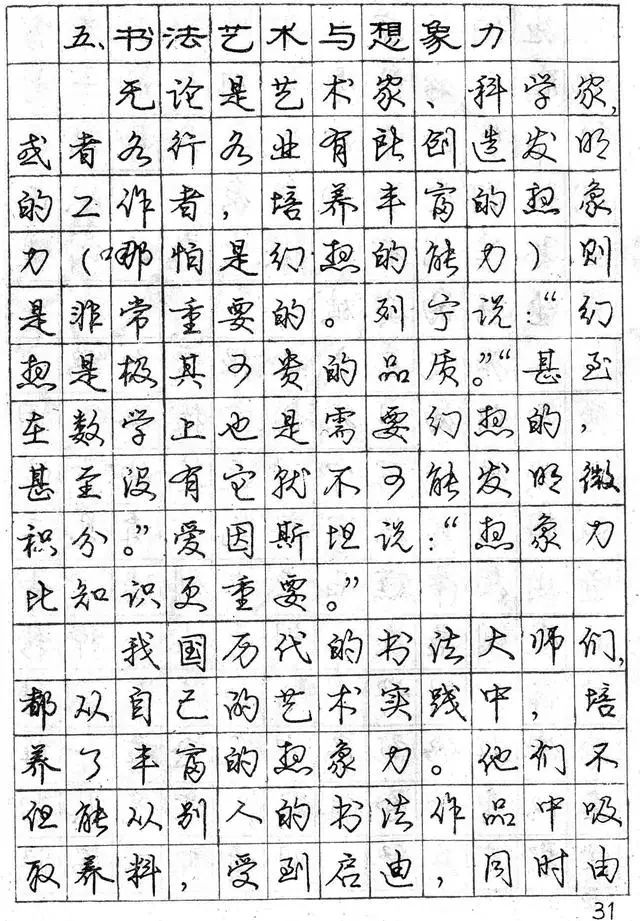 五、书法艺术与想象力
无论是艺术家、科学家,
或者各行各业有所创造发明
的工作者，培养丰富的想象
力（哪怕是幻想的能力）则
是非常重要的。列宁说：“幻
想是极其可贵的品质。”“甚至
在数学上也是需要幻想的，
甚至没有它就不可能发明微
积分。”爱因斯坦说：“想象力
比知识更重要。”
我国历代的书法大师们,
都从自己的艺术实践中，培
养了丰富的想象力。他们不
但能从别人的书法作品中吸
取养料，受到启迪，同时由
31